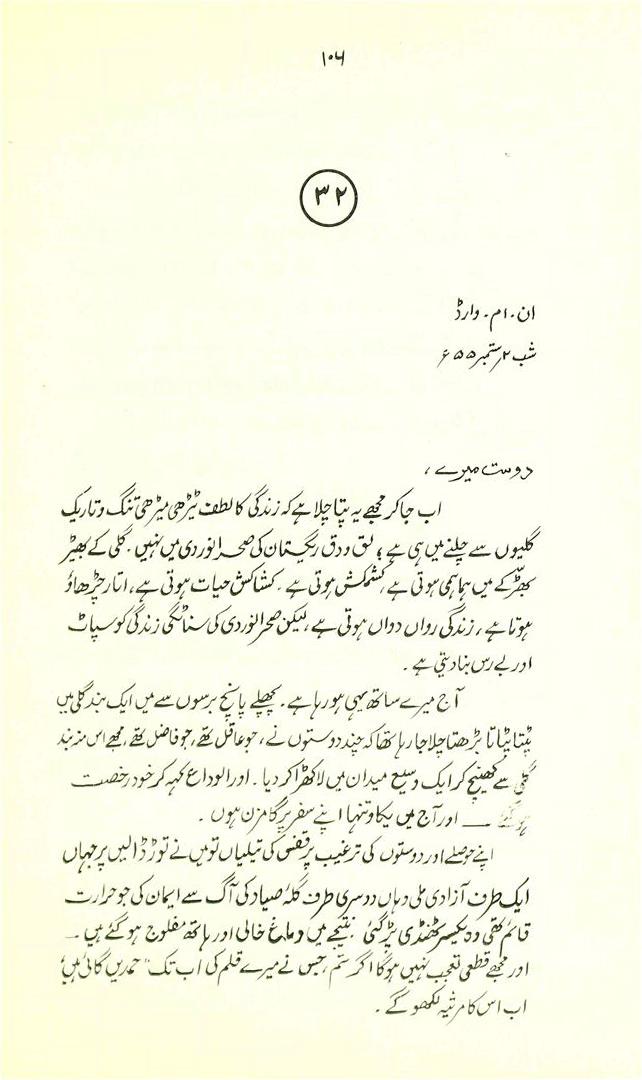 ۱۰۶
۳۲
ان ۔ ام ۔ وارڈ
شب ۲ ستمبر ۵۵ ۶ء
دوست میرے ،
اب جا کر مجھے یہ پتا چلا ہے کہ زندگی کا لطف ٹیڑھی میڑھی تنگ و تاریک
گلیوں سے چلنے میں ہی ہے ؛ لق و دق ریگستان کی صحرا نوردی میں نہیں ۔ گلی کے بھیڑ
بھڑکے میں ہماہمی ہوتی ہے ، کشمکش ہوتی ہے ۔ کشاکش حیات ہوتی ہے ، اتار چڑھاؤ
ہوتا ہے ، زندگی رواں دواں ہوتی ہے ، لیکن صحرا نوردی کی زندگی کو سپاٹ
اور بے رس بنا دیتی ہے ۔
آج میرے ساتھ یہی ہو رہا ہے ۔ پچھلے پانچ برسوں سے میں ایک بند گلی میں
ٹپٹاتا بڑھتا چلا جا رہا تھا کہ چند دوستوں نے ، جو عاقل تھے ، جو فاضل تھے ، مجھے اس منہ بند
گلی سے کھینچ کر ایک وسیع میدان میں لا کھڑا کر دیا ۔ اور الوداع کہہ کر خود رخصت
ہو گئے ـــ اور آج میں یکا و تنہا اپنے سفر پر گامزن ہوں ۔
اپنے حوصلے اور دوستوں کی ترغیب پر قفس کی تیلیاں تو میں نے توڑ ڈالیں پر جہاں
ایک طرف آزادی ملی وہاں دوسری طرف گلۂ صیاد کی آگ سے ایمان کی جو حرارت
قائم تھی وہ یکسر ٹھنڈی پڑ گئی نتیجے میں دماغ خالی اور ہاتھ مفلوج ہو گئے ہیں ۔
اور مجھے قطعی تعجب نہیں ہو گا اگر تم ، جس نے میرے قلم کی اب تک "حمدیں گائی ہیں"
اب اس کا مرثیہ لکھو گے ۔